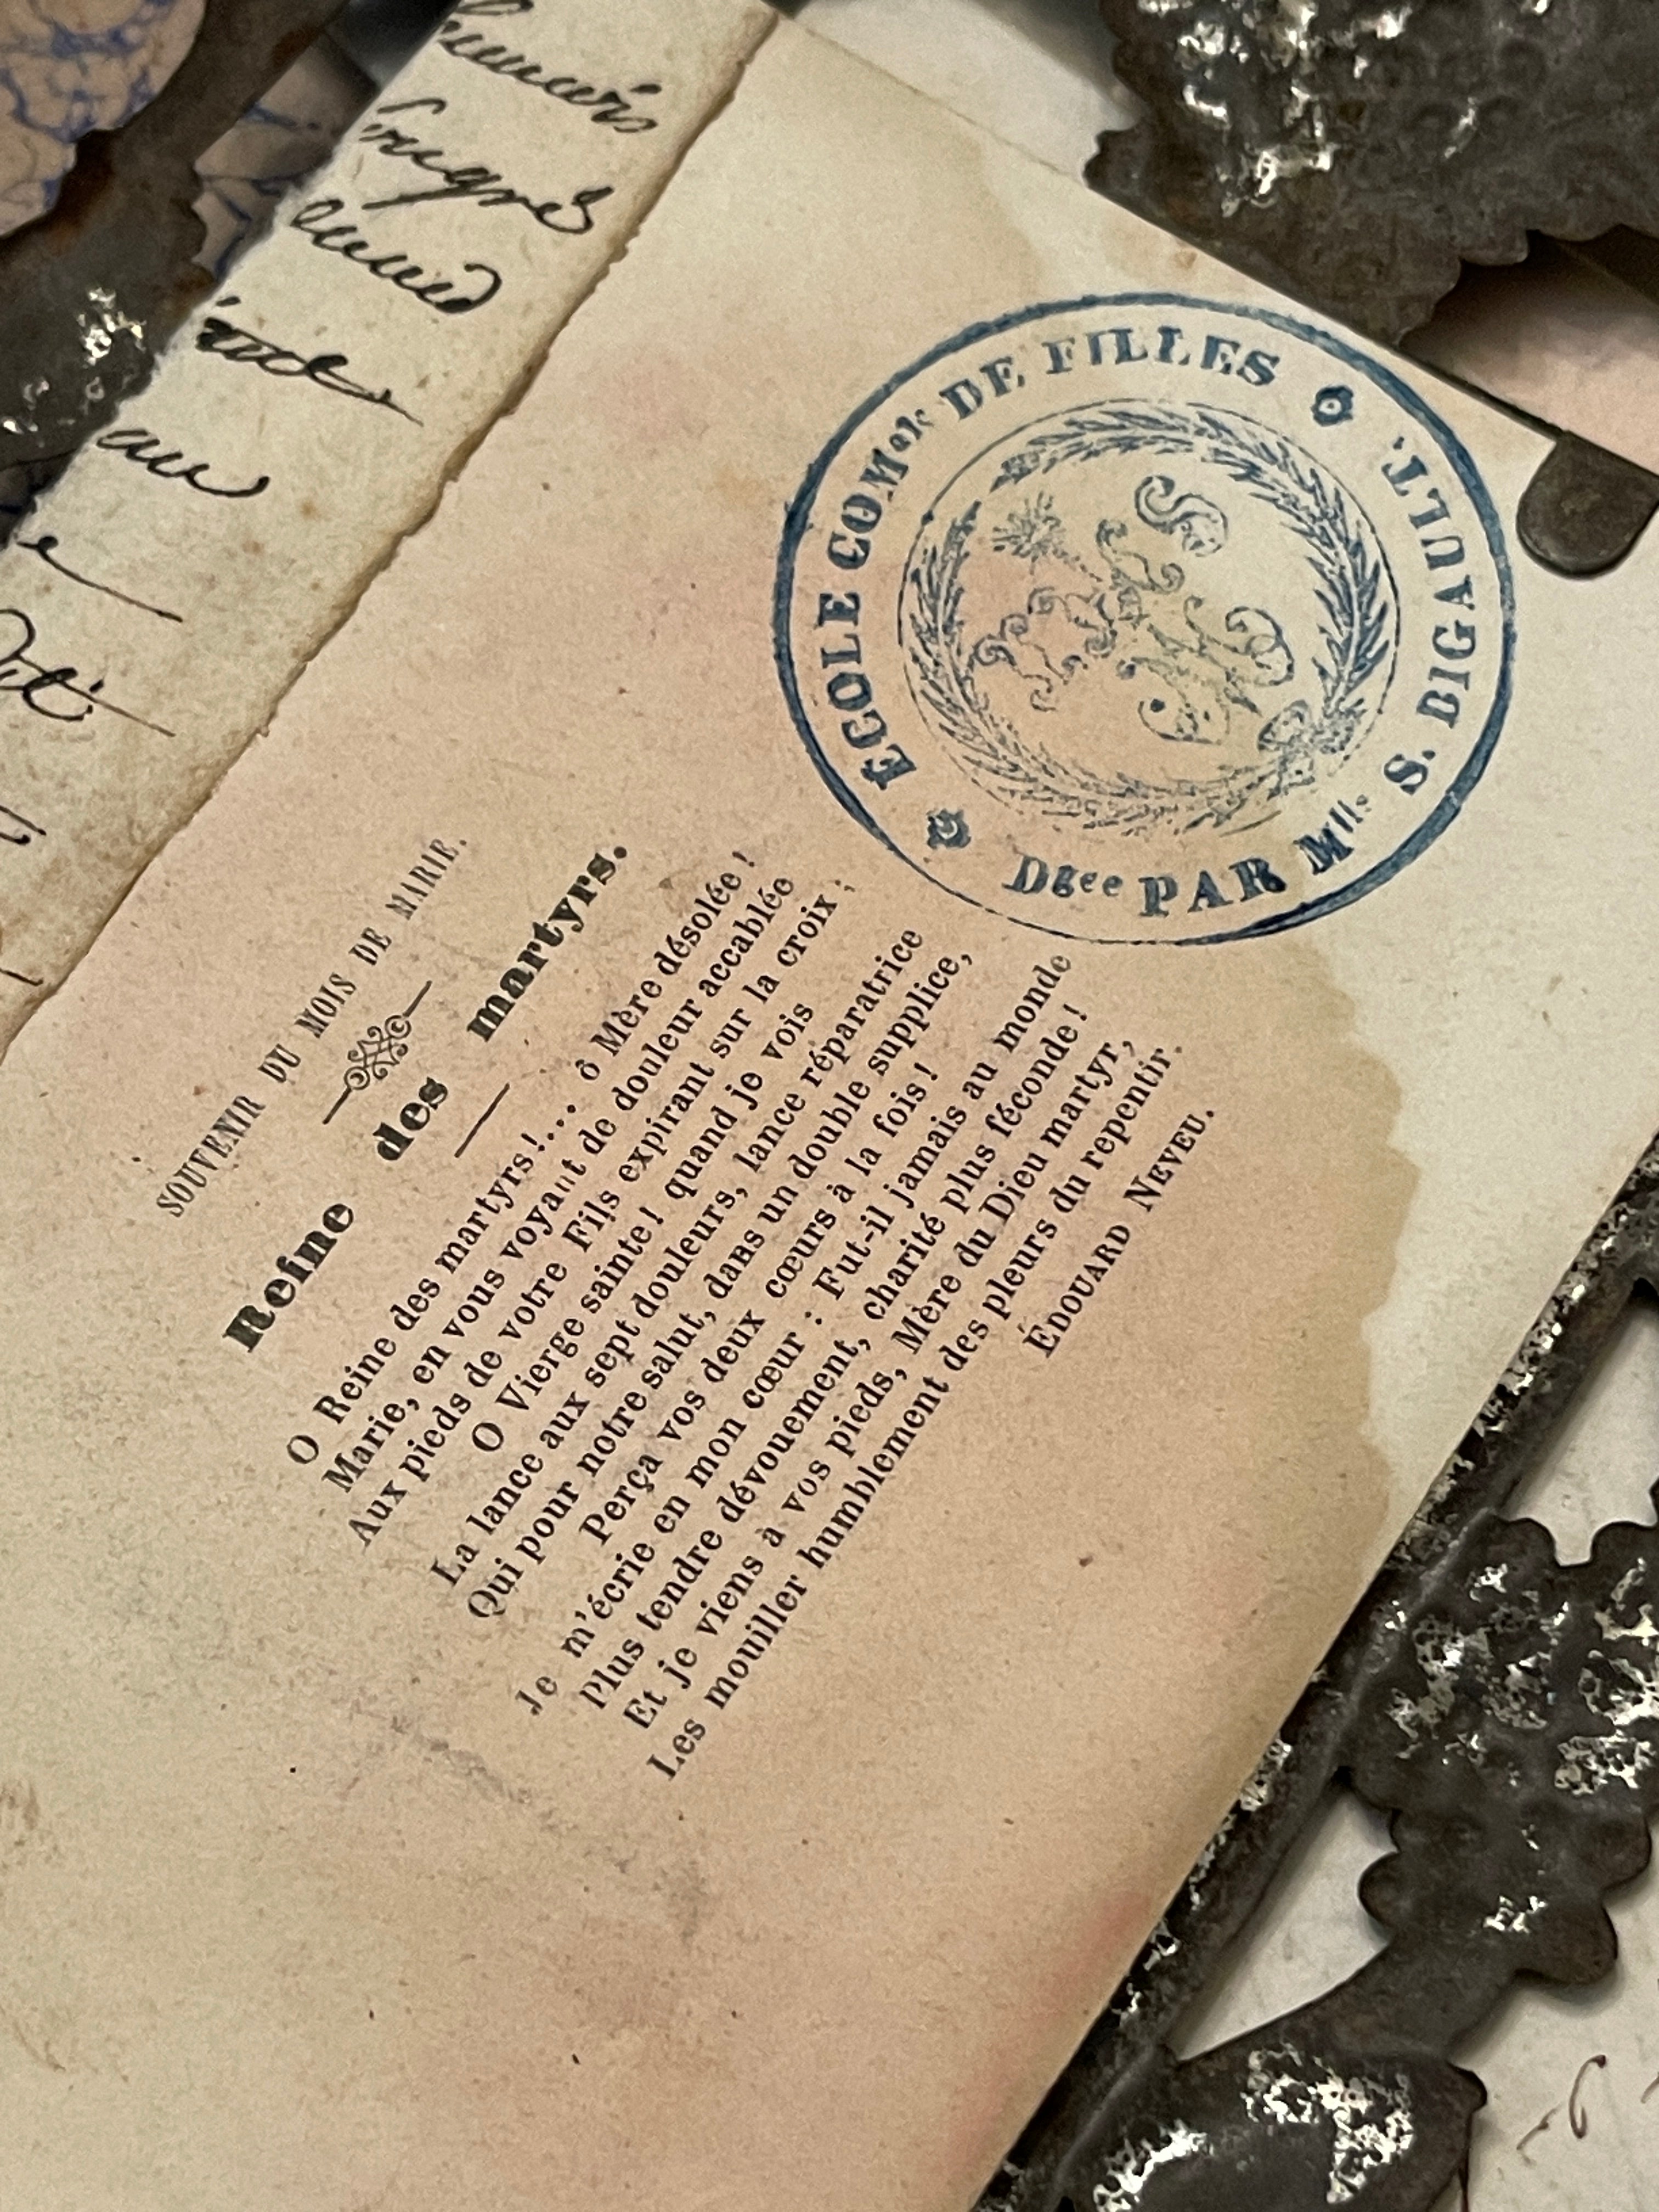 au
SOUVENIR DU MOIS DE MARIE.
Reine des martyrs.
O Reine des martyrs!... ô Mère désolée !
Marie, en vous voyant de douleur accablée
Aux pieds de votre Fils expirant sur la croix ;
O Vierge sainte ! quand je vois
La lance aux sept douleurs, lance réparatrice
Qui pour notre salut, dans un double supplice,
Perça vos deux cœurs à la fois !
Je m'écrie en mon cœur : Fut-il jamais au monde
Plus tendre dévouement, charité plus féconde !
Et je viens à vos pieds, Mère du Dieu martyr,
Les mouiller humblement des pleurs du repentir.
ÉDOUARD NEVEU.
ECOLE COMale DE FILLES
Dgee PAR Mlle S. DIGAULT.